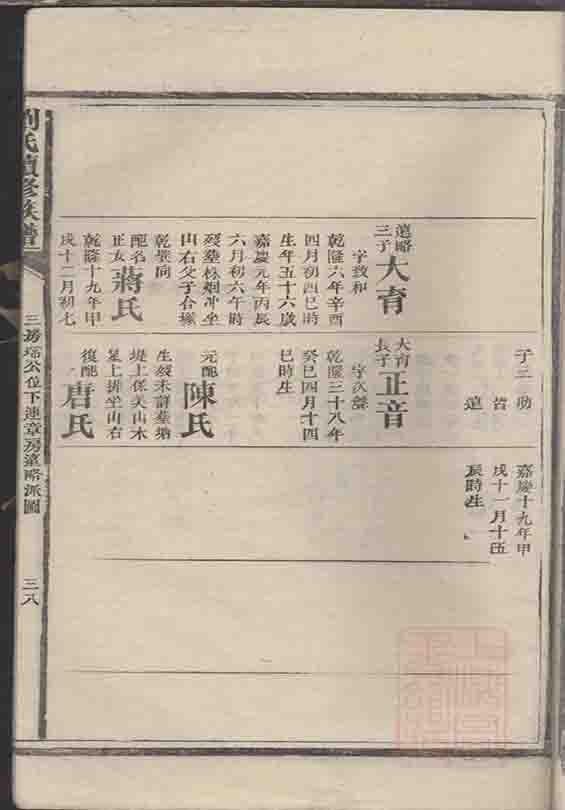 子三 勛
皆
蓮
嘉慶十九年甲
戌十一月十五
辰時生
蓮略
三子
大育
字致和
乾隆六年辛酉
四月初四巳時
生年五十六歲
嘉慶元年丙辰
六月初六午時
山右父子合塚
乾巽向
配名
正女
蔣氏
乾隆十九年甲
戌十二月初七
大育
長子
正音
乾隆三十八年
癸巳四月十四
巳時生
元配
陳氏
生歿未詳葬塘
堤上係美山木
星上排坐山右
復配
唐氏
劉氏續修族譜
三房瑤公位下連章房蓮略派圖
三八